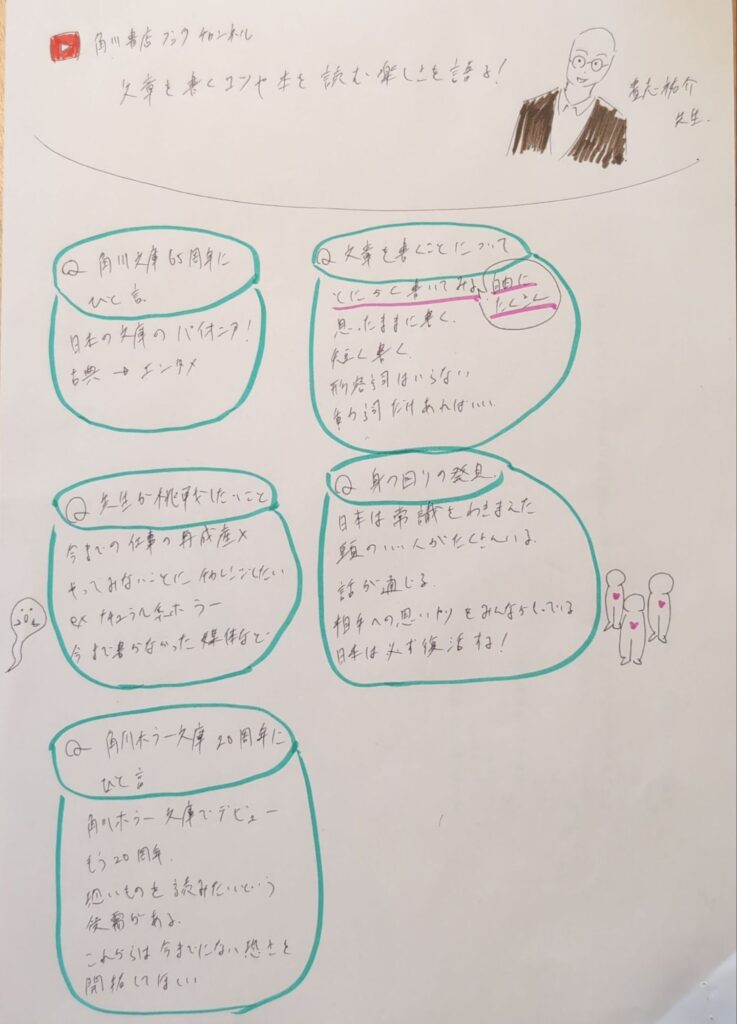 角川書店ブックチャンネル
文章を書くコツや本を読む楽しさを語る!
貴志祐介
先生.
Q 角川文庫65周年に
ひと言
日本の文庫のパイオニア!
古典→エンタメ
Q 文章を書くことについて
とにかく書いてみる
自由に
たくさん
思ったままに書く.
短く書く.
形容詞はいらない
動詞だけあればいい
Q 先生が挑戦したいこと
今までの仕事の再成産×
やってみないことにチャレンジしたい
ex ナチュラル系ホラー
今まで書かなかった媒体など
Q 身の回りの発見.
日本は常識をわきまえた
頭のいい人がたくさんいる.
話が通じる.
相手への思いやりをみんなもっている
日本は必ず復活する!
Q 角川ホラー文庫20周年に
ひと言
角川ホラー文庫でデビュー
もう20周年.
恐いものを読みたいという
がある.
これからは今までにない恐さを
開拓してほしい